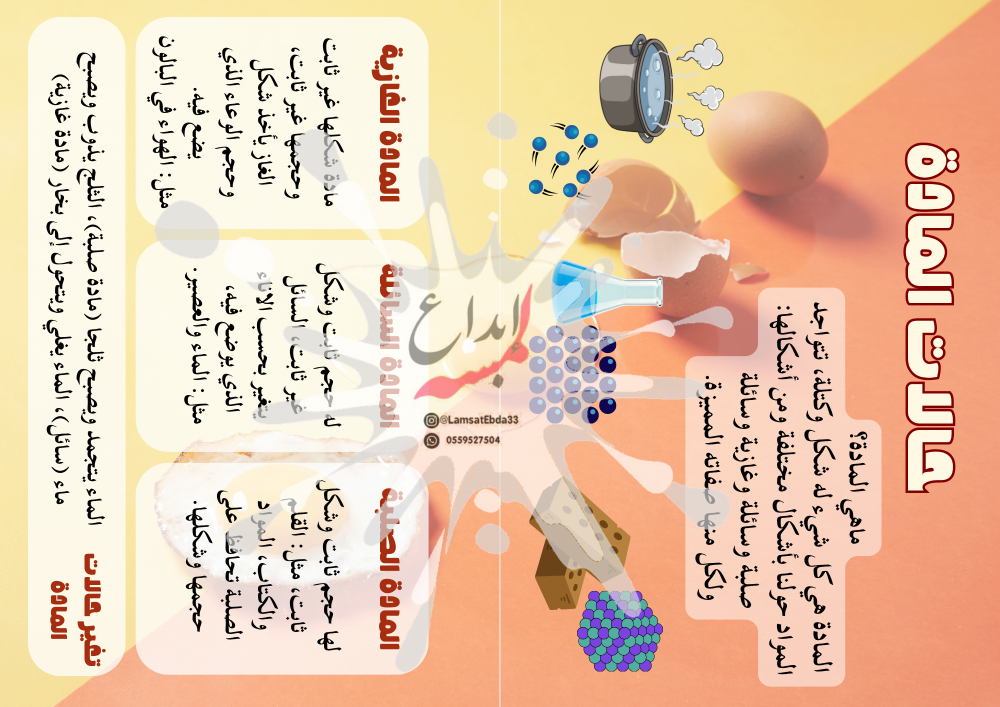 حالات المادة
ماهي المادة؟
المادة هي كل شيء له شكل وكتلة، تتواجد
المواد حولنا بأشكال مختلفة ومن أشكالها:
صلبة وسائلة وغازية وسائلة
ولكل منها صفاته المميزة.
المادة الصلبة
لها حجم ثابت وشكل
ثابت، مثل: القلم
والكتاب، المواد
الصلبة تحافظ على
حجمها وشكلها.
المادة السائلة
له حجم ثابت وشكل
غير ثابت، السائل
يتغير بحسب الاناء
الذي يوضع فيه،
مثل: الماء والعصير.
المادة الغازية
مادة شكلها غير ثابت
وحجمها غير ثابت،
الغاز يأخذ شكل
وحجم الوعاء الذي
يضع فيه.
مثل: الهواء في البالون
تغير حالات
المادة
الماء يتجمد ويصبح ثلجا (مادة صلبة)، الثلج يذوب ويصبح
ماء (سائل)، الماء يغلي ويتحول إلى بخار (مادة غازية)
لمسة
إبداع
@LamsatEbda33
0559527504